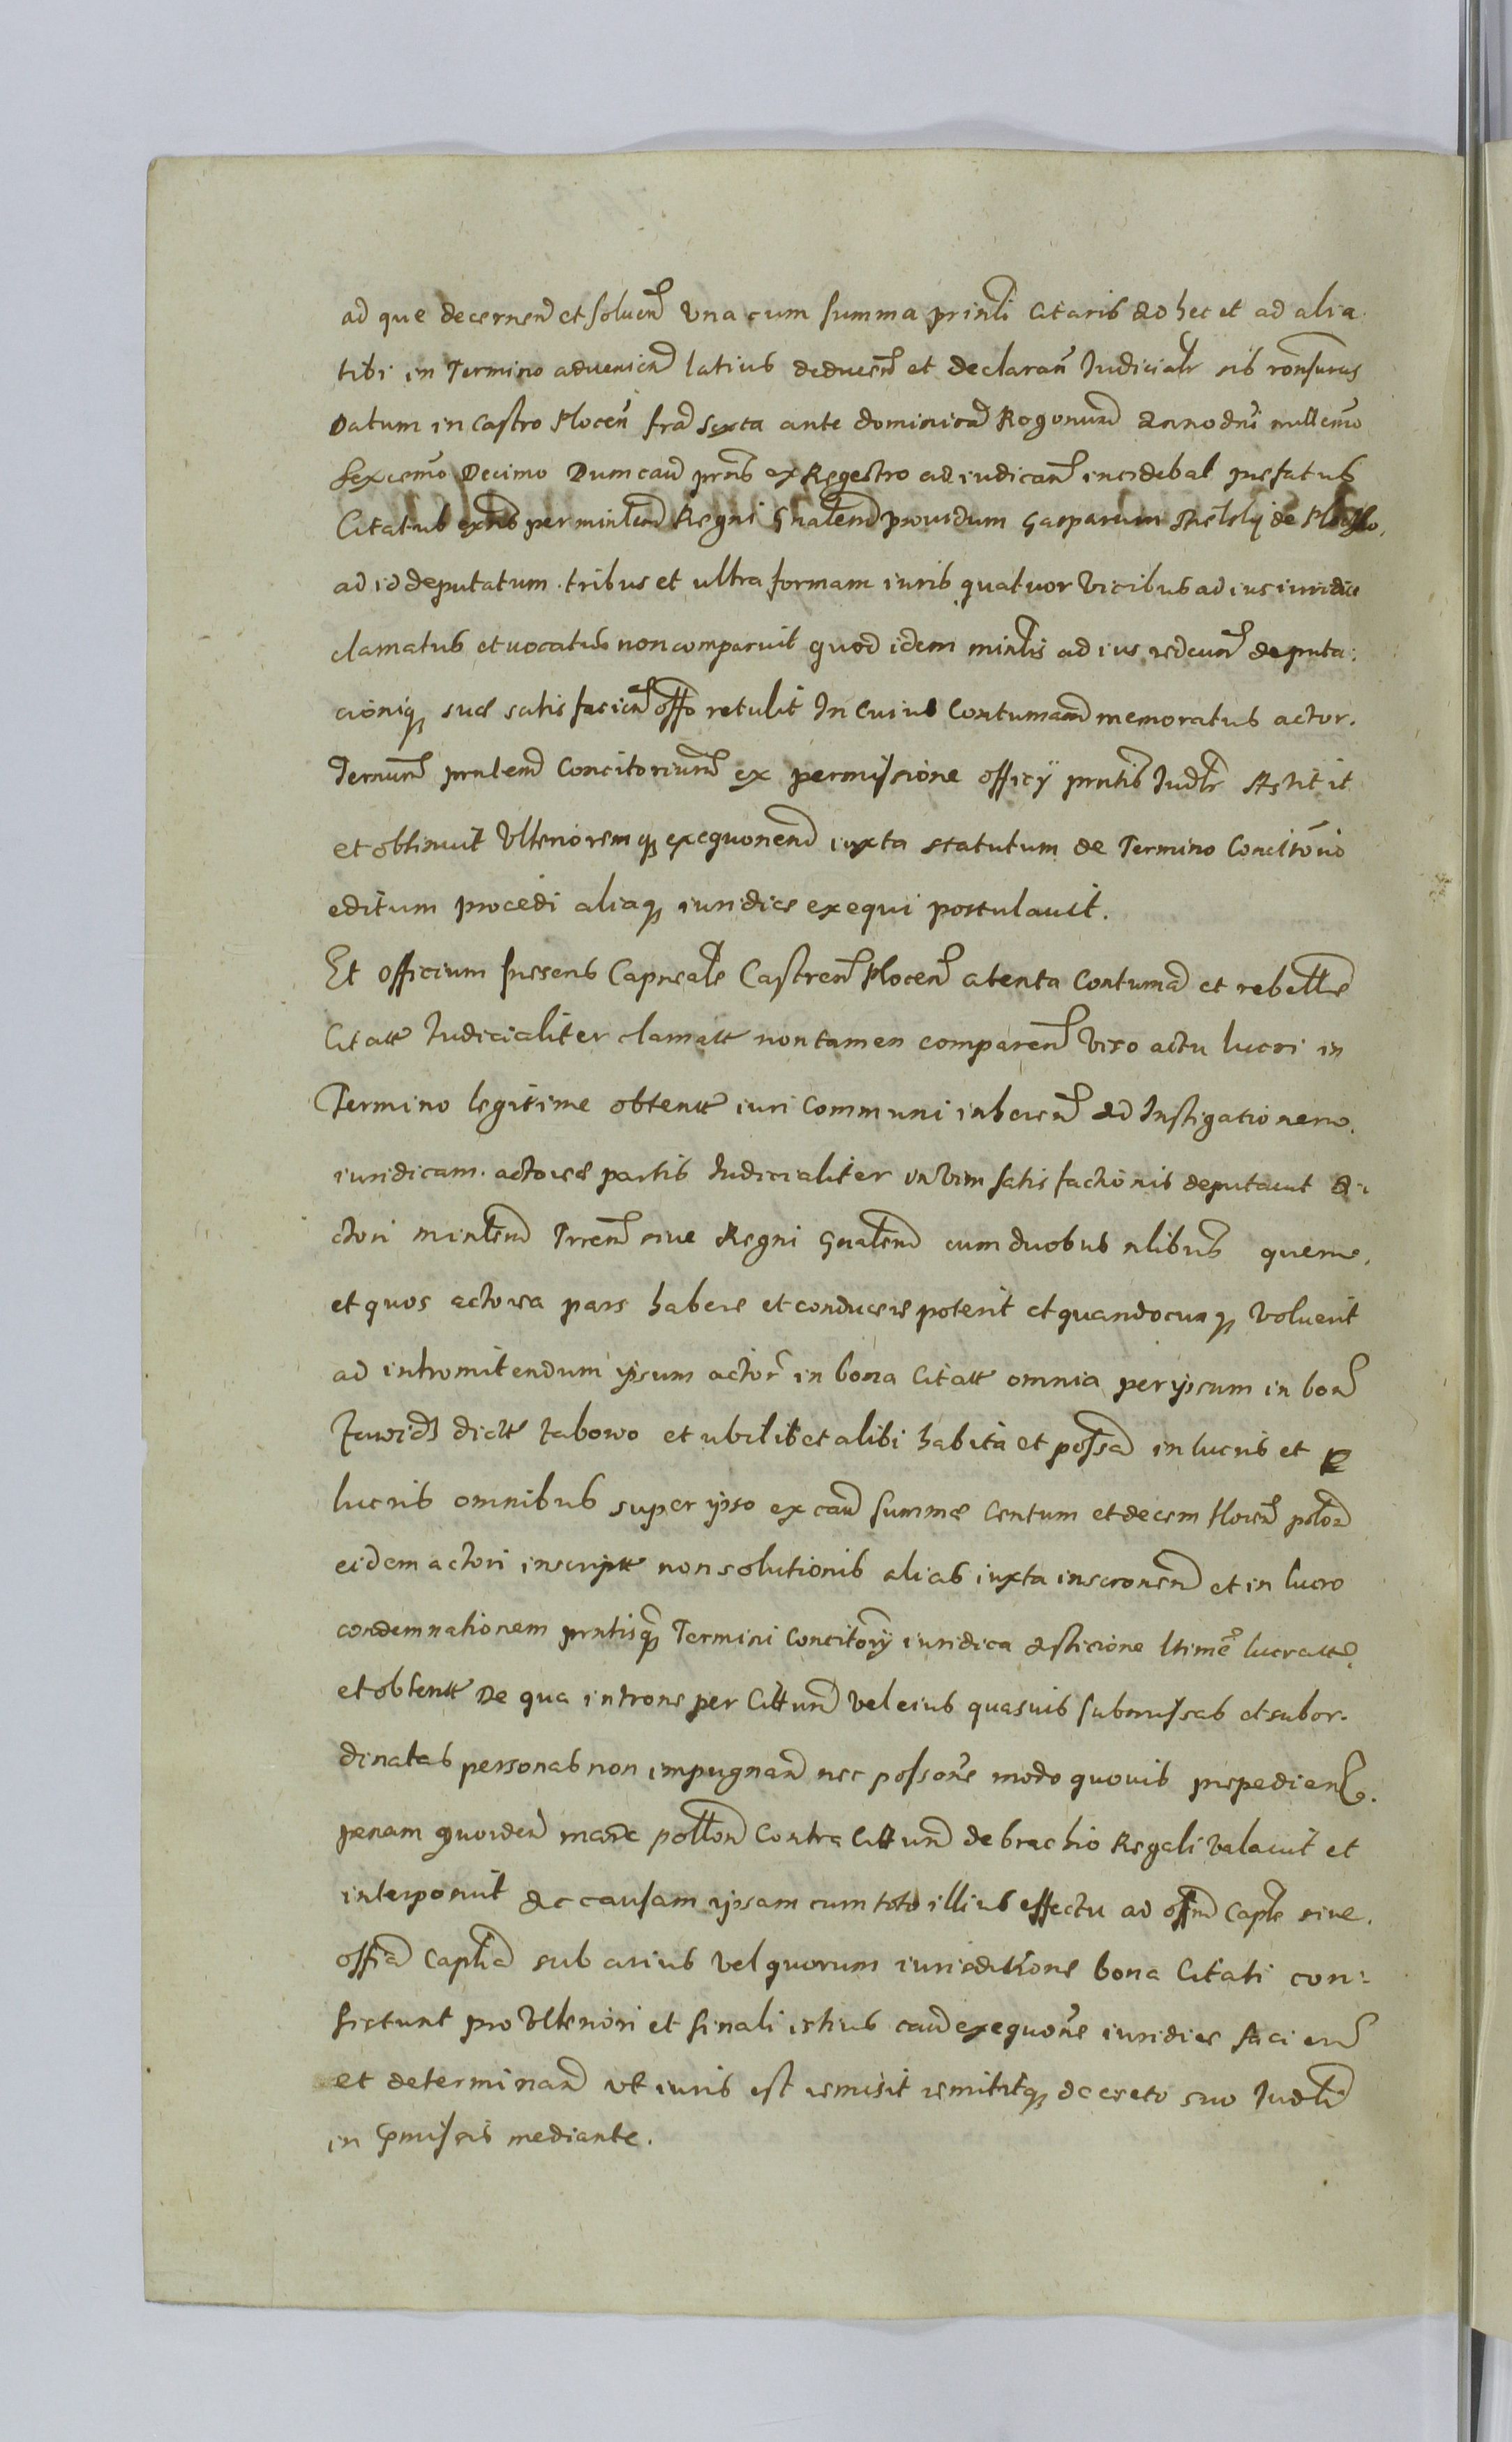 ad que decernen et soluen Vna cum summa prinli Citaris ad hec et ad alia
tibi in Termino aduenien latius deducen et declaran Iudicialr sis ronsurus
Datum in Castro Plocen fra Sexta ante dominica Rogonum Anno dni millemo
Sexcemo Decimo Dum cau prns ex Regestro ad iudican incidebat prefatus
Citatus exns per minlem Regni Gnalem prouidum Gasparum de
ad id deputatum tribus et ultra formam iuris quatuor vicibus ad ius iuridice
clamatus et uocatus non comparuit quod idem minlis ad ius redeun deputa:
cioniq suæ satis facien offo retulit In Cuius Contumam memoratus actor.
Ternum prntem Concitorium ex permissione officÿ prntis Iudlr Astitit
et obtinuit Vlteriorem q exequonem iuxta statutum de Termino Concitorio
editum procedi aliaq iuridice exequi postulauit.
Et Officium pressens Capneale Castren Plocen atenta Contuma et rebelle
Citatt Iudicialiter clamatt non tamen comparen viso actu lucri in
Termino legitime obtentt iuri Communi inheren ad Instigationem
iuridicam actoreæ partis Iudicialiter in vim satis factionis deputauit A:
ctori minlem Trren siue Regni Gnalem cum duobus nlibus quem
et quos actorea pars habere et conducere poterit et quandocunq voluerit
ad intromitendum ipsum actor in bona Citatt omnia per ipsum in bon
dictt Iabowo et ubilibet alibi habita et possa in lucris et
lucris omnibus super ipso ex cau summæ Centum et decem floren polon
eidem actori inscriptt non solutionis alias iuxta inscronem et in lucro
condemnationem prntisq Termini Concitorÿ iuridica astitione ltime lucratte
et obtentt De qua introne per Cittum vel eius quasuis submissas et subor-
dinatas personas non impugnan nec possone modo quouis prepedien.
penam quorden marc pollon Contra Cittum de brachio Regali valauit et
interponuit Ac causam ipsam cum toto illius effectu ad offm Caple siue
offia Caplia sub cuius vel quorum iurisditione bona Citati con:
sistunt pro Vlteriori et finali istius cau exequone iuridice facien
et determinan vt iuris est remisit remititq decreto suo Iudli
in pmissis mediante.